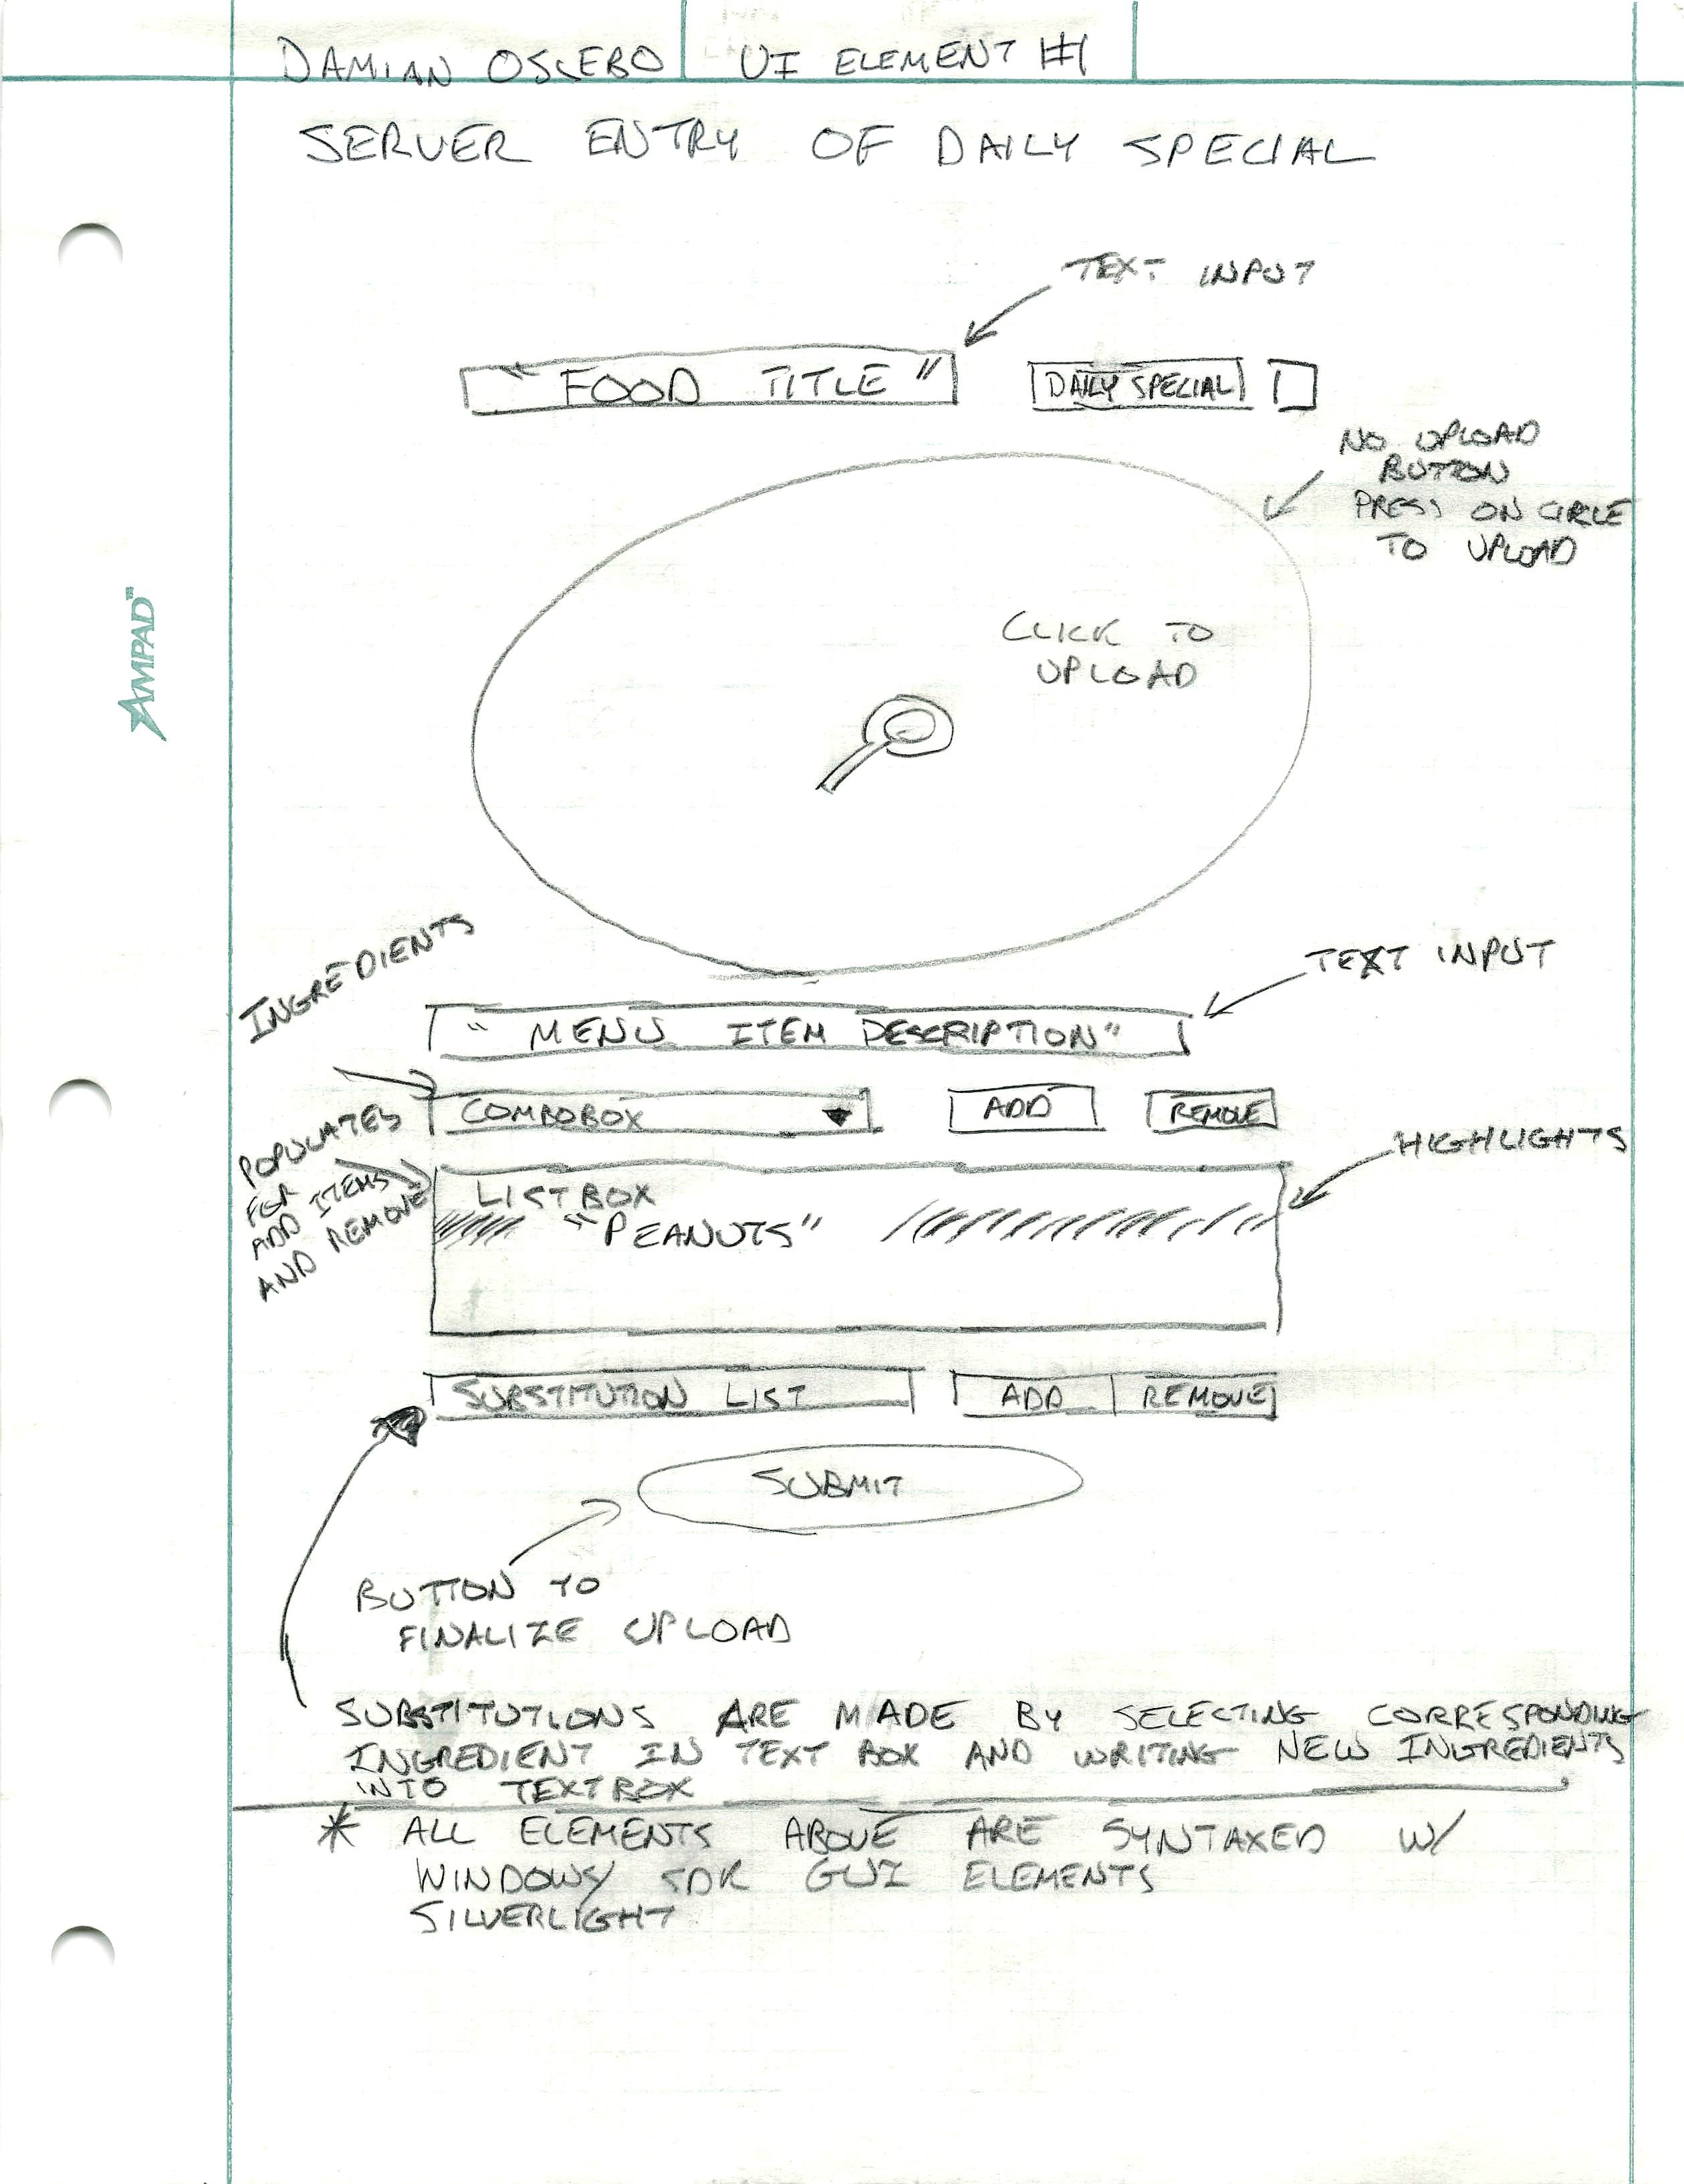 DAMIAN OSLEBO UI ELEMENT #1
SERVER ENTRY OF DAILY SPECIAL
TEXT INPUT
"FOOD TITLE"
DAILY SPECIAL
NO UPLOAD
BUTTON
PRESS ON CIRCLE
TO UPLOAD
CLICK TO
UPLOAD
AMPAD™
INGREDIENTS
TEXT INPUT
"MENU ITEM DESCRIPTION"
COMBOBOX
ADD
REMOVE
POPULATES
FOR
ADD ITEMS
AND REMOVE
HIGHLIGHTS
LISTBOX
"PEANUTS"
SUBSTITUTION LIST
ADD
REMOVE
SUBMIT
BUTTON TO
FINALIZE UPLOAD
SUBSTITUTIONS ARE MADE BY SELECTING CORRESPONDING
INGREDIENT IN TEXT BOX AND WRITING NEW INGREDIENTS
INTO TEXTBOX
* ALL ELEMENTS ABOVE ARE SYNTAXED W/
WINDOWS SDK GUI ELEMENTS
SILVERLIGHT